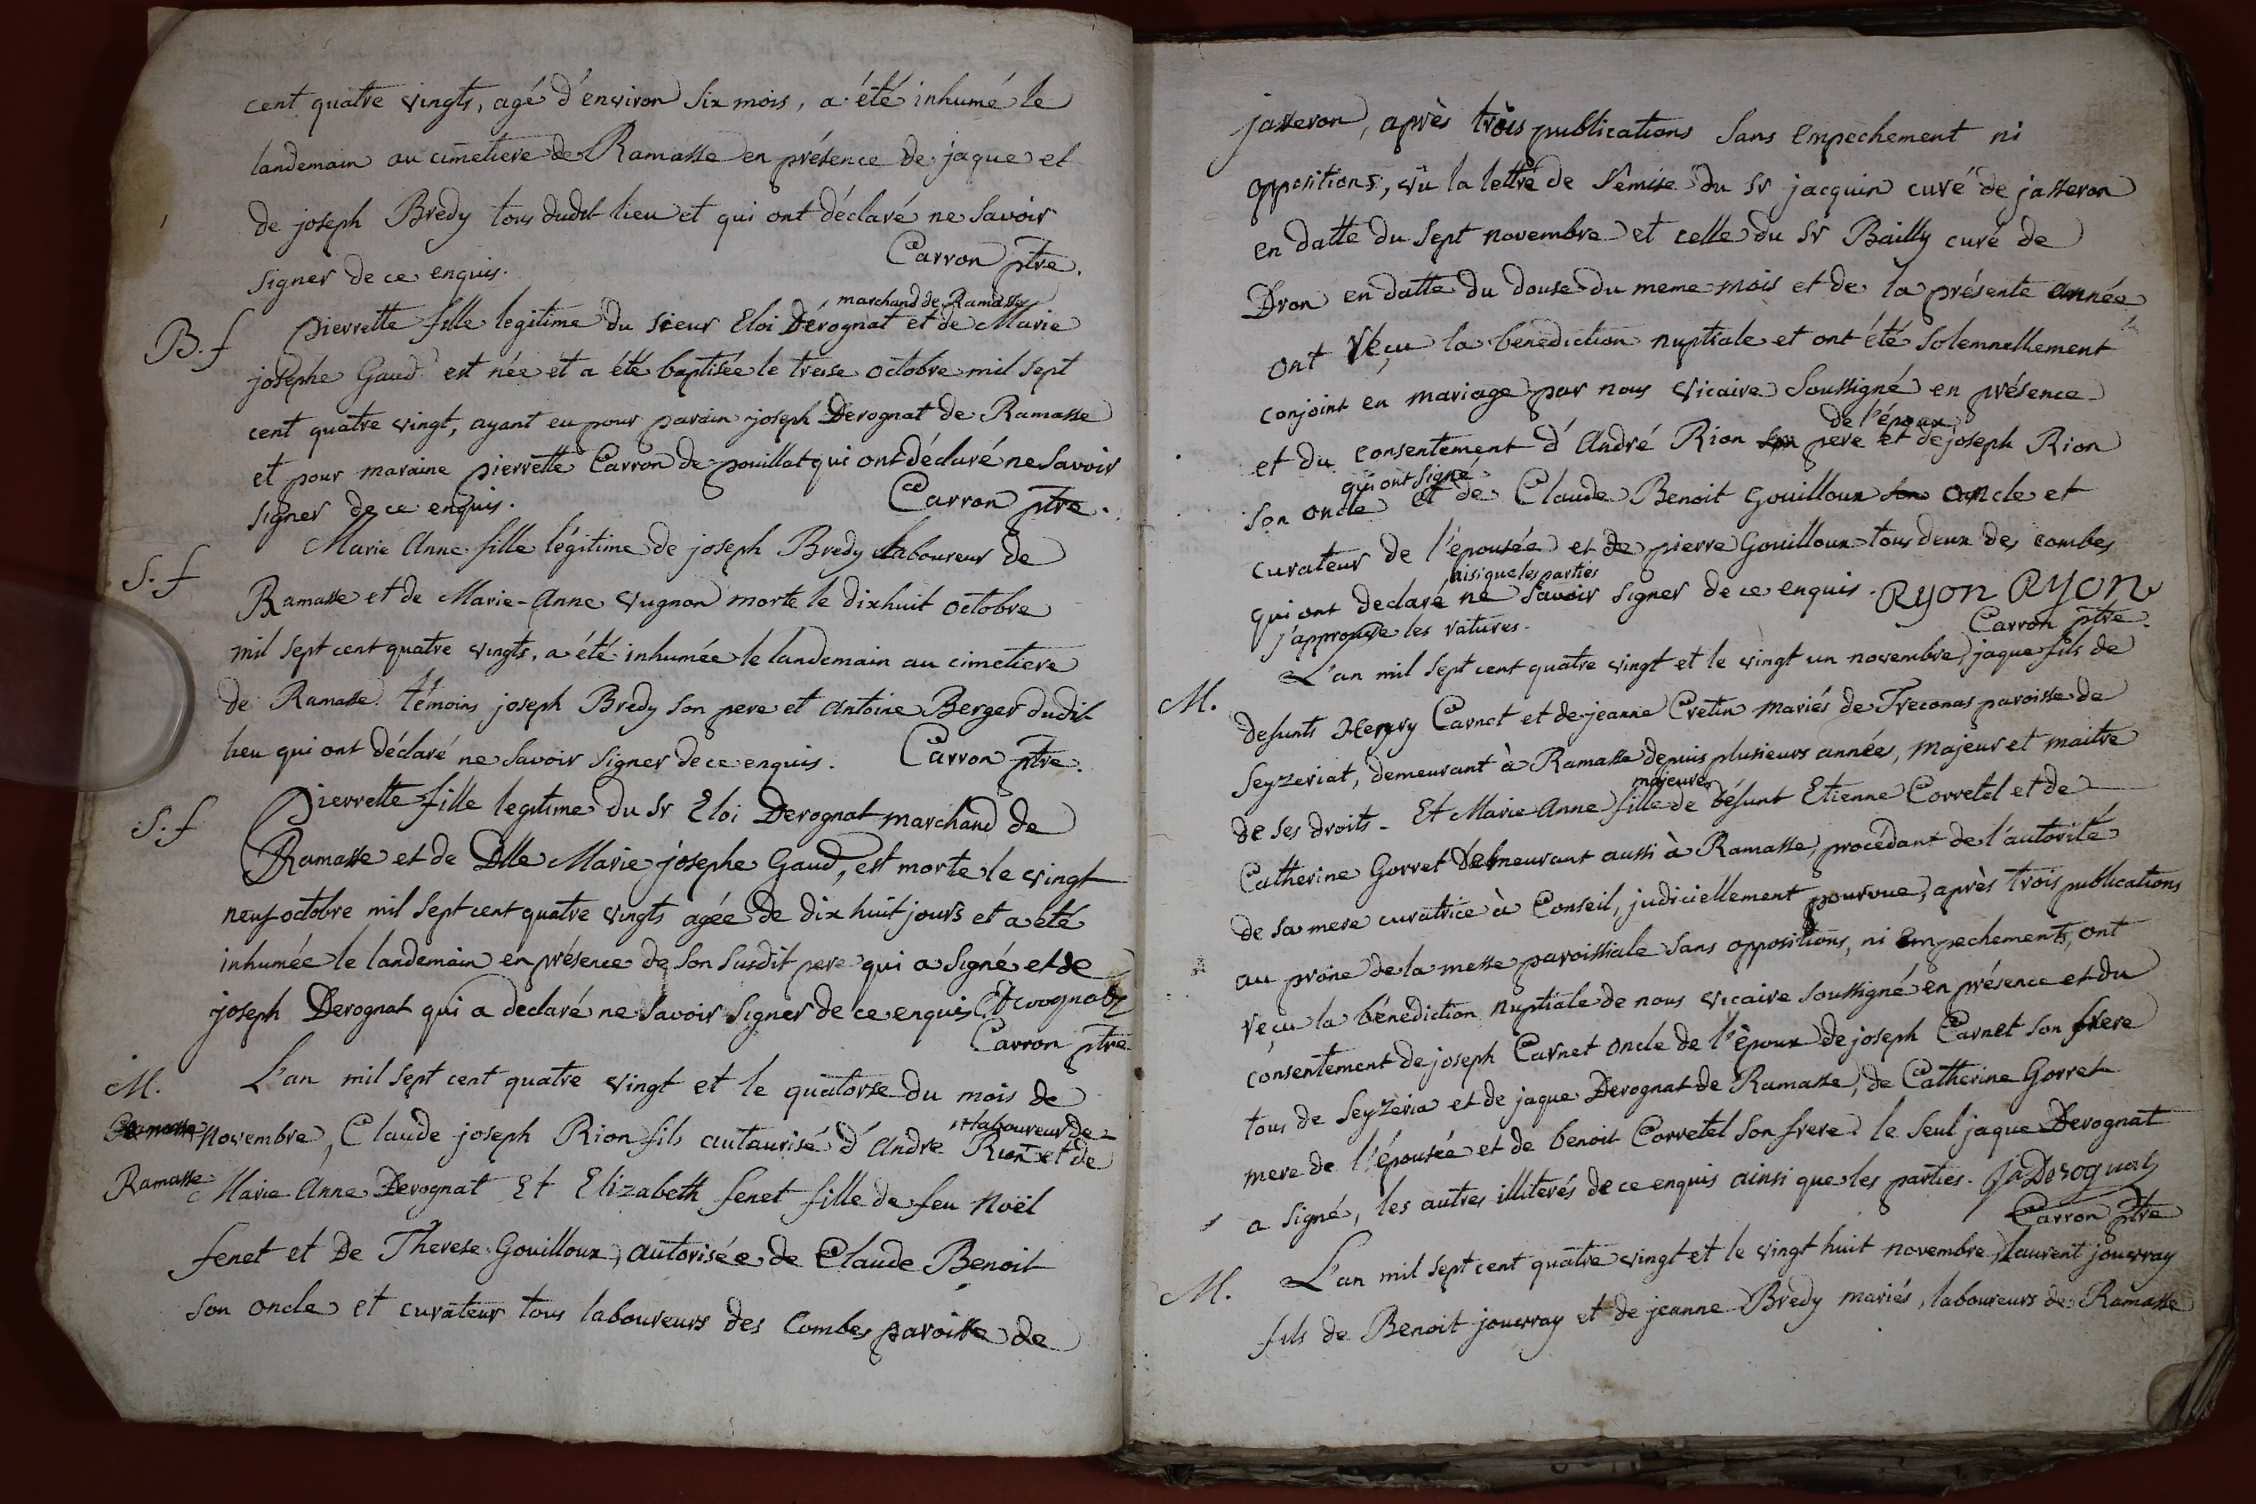 cent quatre vingts, agé d'environ six mois, a été inhumé le
landemain au cimetiere de Ramasse en présence de jaque et
de joseph Bredy tous dudit lieu et qui ont déclaré ne savoir
signer de ce enquis. Carron ptre.
marchand de Ramasse
B. f Pierrette fille legitime du sieur Eloi Dérognat et de Marie
josephe Gaud est née et a été baptisée le treise octobre mil sept
cent quatre vingt, ayant eu pour parain joseph Derognat de Ramasse
et pour maraine pierrette Carron de pouillat qui ont déclaré ne savoir
signer de ce enquis. Carron ptre.
S. f Marie Anne fille légitime de joseph Bredy laboureur de
Ramasse et de Marie-Anne Vugnon morte le dixhuit octobre
mil sept cent quatre vingts, a été inhumée le landemain au cimetiere
de Ramasse. témoins joseph Bredy son pere et Antoine Berger dudit
lieu qui ont déclaré ne savoir signer de ce enquis. Carron ptre.
S. f Pierrette fille legitime du Sr Eloi Derognat marchand de
Ramasse et de Dlle Marie josephe Gaud, est morte le vingt
neuf octobre mil sept cent quatre vingts agée de dix huit jours et a été
inhumée le landemain en présence de son susdit pere qui a signé et de
joseph Derognat qui a declaré ne savoir signer de ce enquis Derognat
Carron ptre
M. L'an mil sept cent quatre vingt et le quatorse du mois de
et laboureur de
Ramasse Novembre, Claude joseph Rion fils autaurisé d'André Rion et de
Ramasse Marie Anne Derognat Et Elizabeth fenet fille de feu Noël
fenet et De Therese Gouilloux, autorisée de Claude Benoit
son oncle et curateur tous laboureurs des Combes paroisse de
jasseron, après trois publications sans empechement ni
oppositions, vû la lettre de remise du Sr jacquin curé de jasseron
en datte du sept novembre et celle du Sr Bailly curé de
Dron en datte du douse du meme mois et de la présente année
ont reçu la benediction nuptiale et ont été solemnellement
conjoint en mariage par nous vicaire soussigné en présence
de l'époux
et du consentement d'André Rion son pere et de joseph Rion
qui ont signé
son oncle et de Claude Benoit Gouilloux son oncle et
curateur de l'épousée et de pierre Gouilloux tous deux des combes
aisi que les parties
qui ont declaré ne savoir signer de ce enquis. Ryon Ryon
j'approuve les ratures. Carron ptre.
M. L'an mil sept cent quatre vingt et le vingt un novembre, jaque fils de
defunts Henry Carnet et de jeanne Cretin mariés de Treconas paroisse de
Seyzeriat, demeurant à Ramasse depuis plusieurs année, majeur et maitre
majeure
de ses droits - Et Marie Anne fille de défunt Etienne Corretel et de
Catherine Gorret demeurant aussi à Ramasse, procédant de l'autorité
de sa mere curatrice à Conseil, judiciellement pourvue, après trois publications
au prone de la messe paroissiale sans oppositions, ni empechements, ont
reçu la bénédiction nuptiale de nous vicaire soussigné en présence et du
consentement de joseph Carnet oncle de l'époux de joseph Carnet son frere
tous de Seyzeria et de jaque Derognat de Ramasse, de Catherine Gorret
mere de l'épousée et de benoit Corretel son frere. le seul jaque Derognat
a signé, les autres illiterés de ce enquis ainsi que les parties. Ja Derognat
Carron ptre
M. L'an mil sept cent quatre vingt et le vingt huit novembre, laurent jouvray
fils de Benoit jouvray et de jeanne Bredy mariés, laboureurs de Ramasse